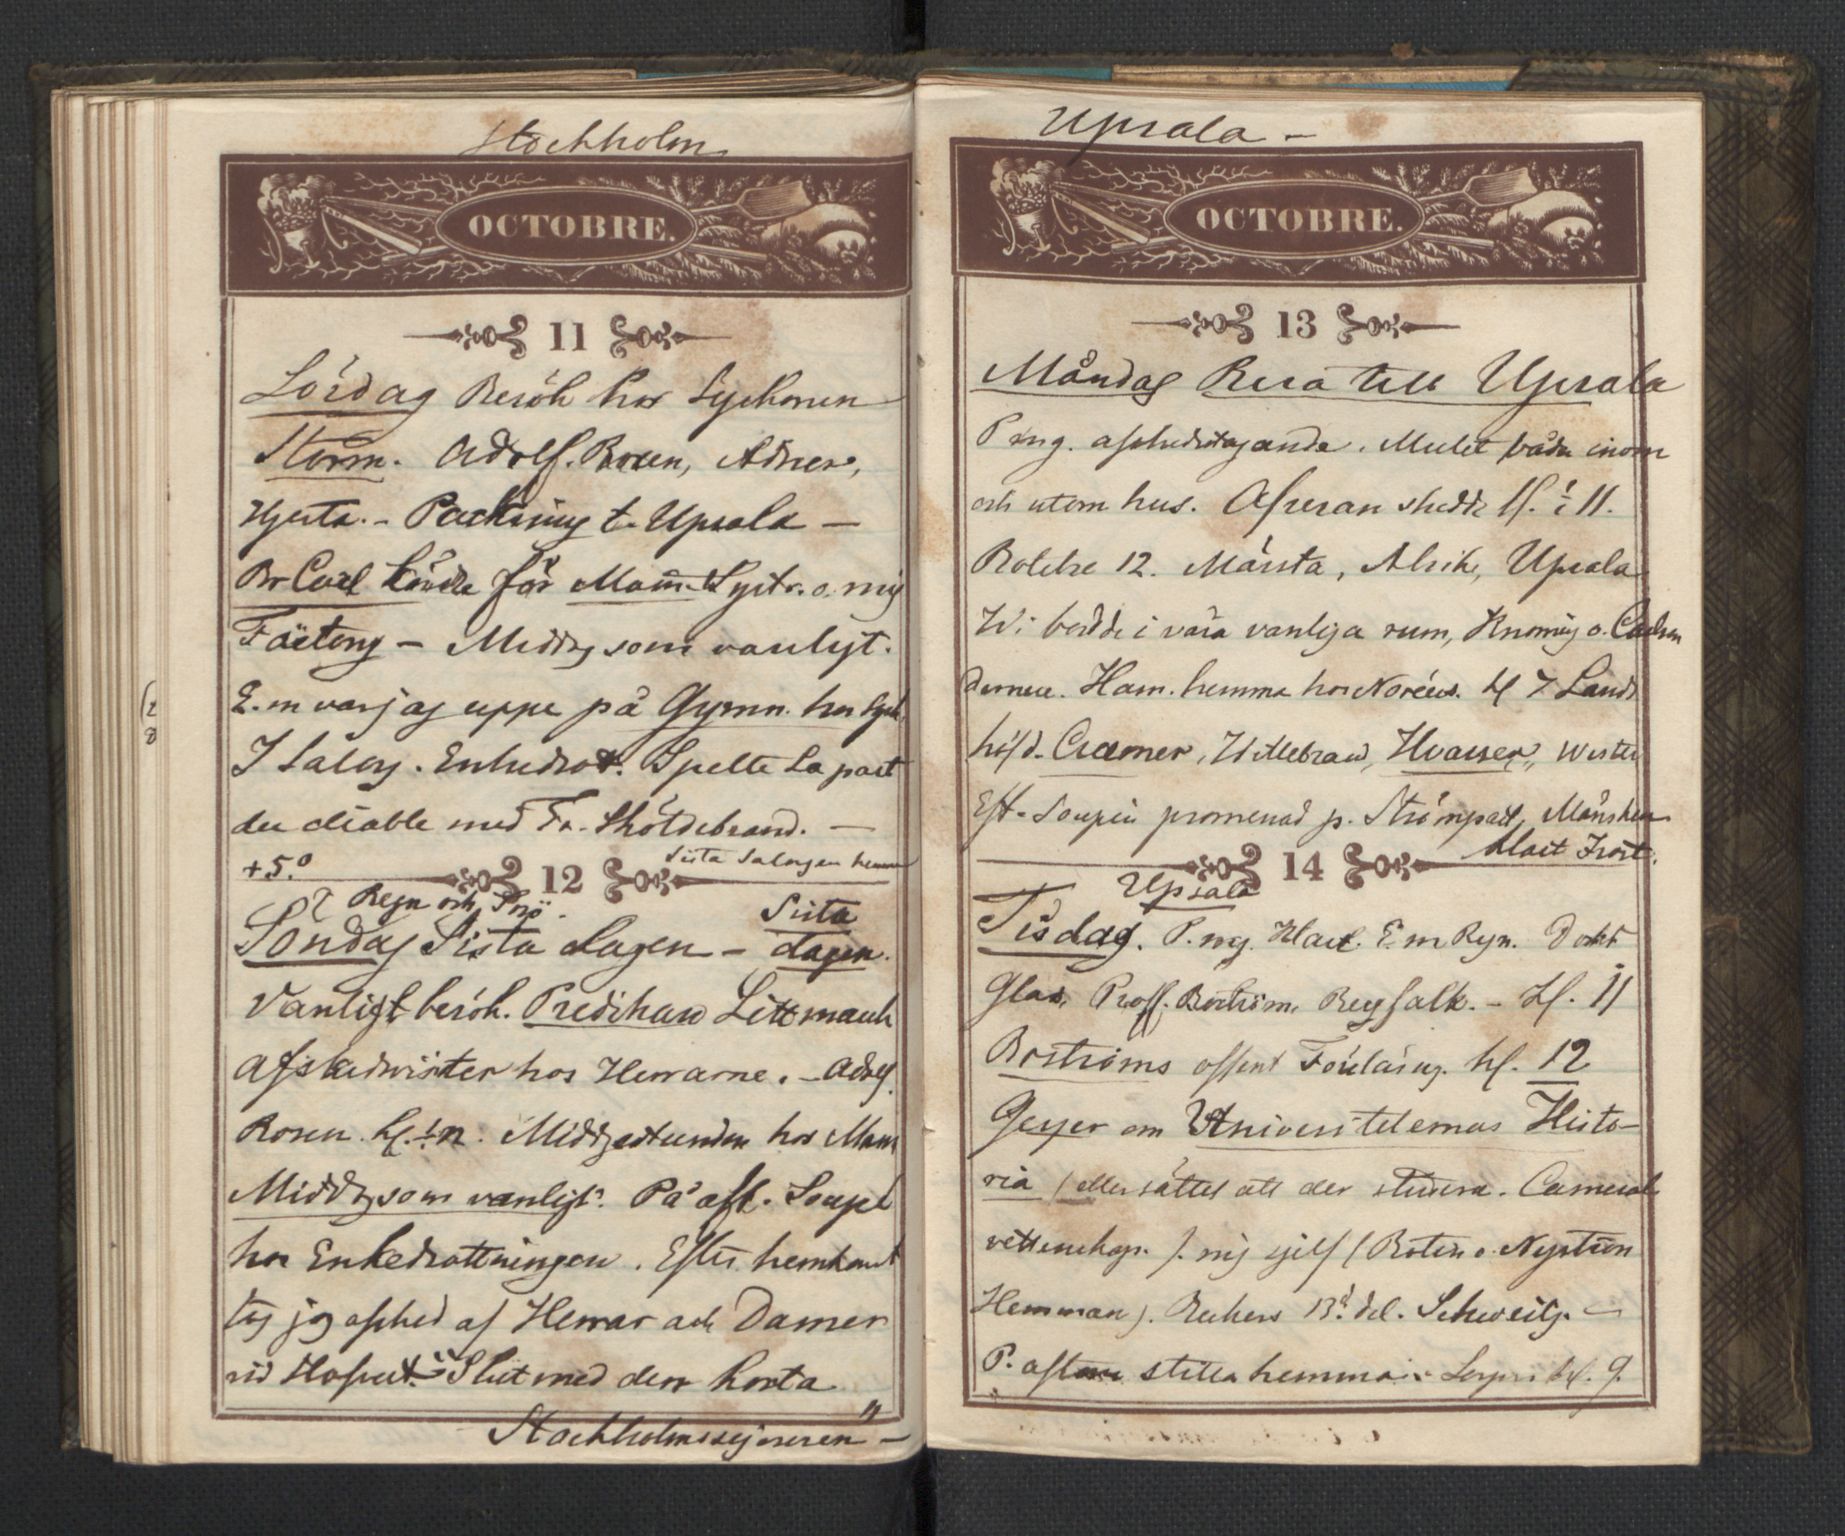 Stockholm
OCTOBRE.
11
Lördag Besök hos Syskonen
Storm. Adolf. Rosen, Adner,
Hjerta. - Packning t. Upsala -
Br Carl körde för Mam. Systr. o. mig
Faeton - Middg som vanligt.
E. m var jag uppe på Gymn. hos Sysk.
I Salong. Enkedrott. Spelte La part
du diable med Fr. Sköldebrand. -
+5.° Sista Salongen hemma
12
Regn och Snö.
Söndag Sista dagen - Sista
dagen.
Vanligt besök. Predikan
Afskedvisiter hos Herrarne. - Adolf
Rosen. kl. ½ . Middgsstunden hos Mam
Middg som vanligt. På aft. Soupé
hos Enkedrottningen. Efter hemkomst
tog jag afsked af Herrar och Damer
vid Hofvet. - Slut med den korta
Stockholmssejouren -
Upsala -
OCTOBRE.
13
Måndag Resa till Upsala
P mg. afskedstagande. Mulet både inom
och utom hus. Afresan skedde kl. ½ 11.
Rotebro 12. Märsta, Alsike, Upsala
Wi bodde i våra vanliga rum, Konung o.
Ham. hemma hos Noréus. kl 7 Lands
höfd. Cramer, Hillebrand, Hwasser,
Eft. Soupén promenad p. Strömpart, Månsken
klart Frost.
14
Upsala
Tisdag. P. mg. Klart. E. m Regn. Dokt
Glas, Prof. Boström, Bergfalk. - Kl. 11
Boströms offent Föreläsng. kl. 12
Geijer om Universiteternas Histo-
ria (eller sättet att der studera. Cameral
vettenskap. f. mig sjelf (Botin o. Nyström
Hemman). Beckers 13.d del. Schweitz. -
P. aftonen stilla hemma. - Soupé kl. 9.